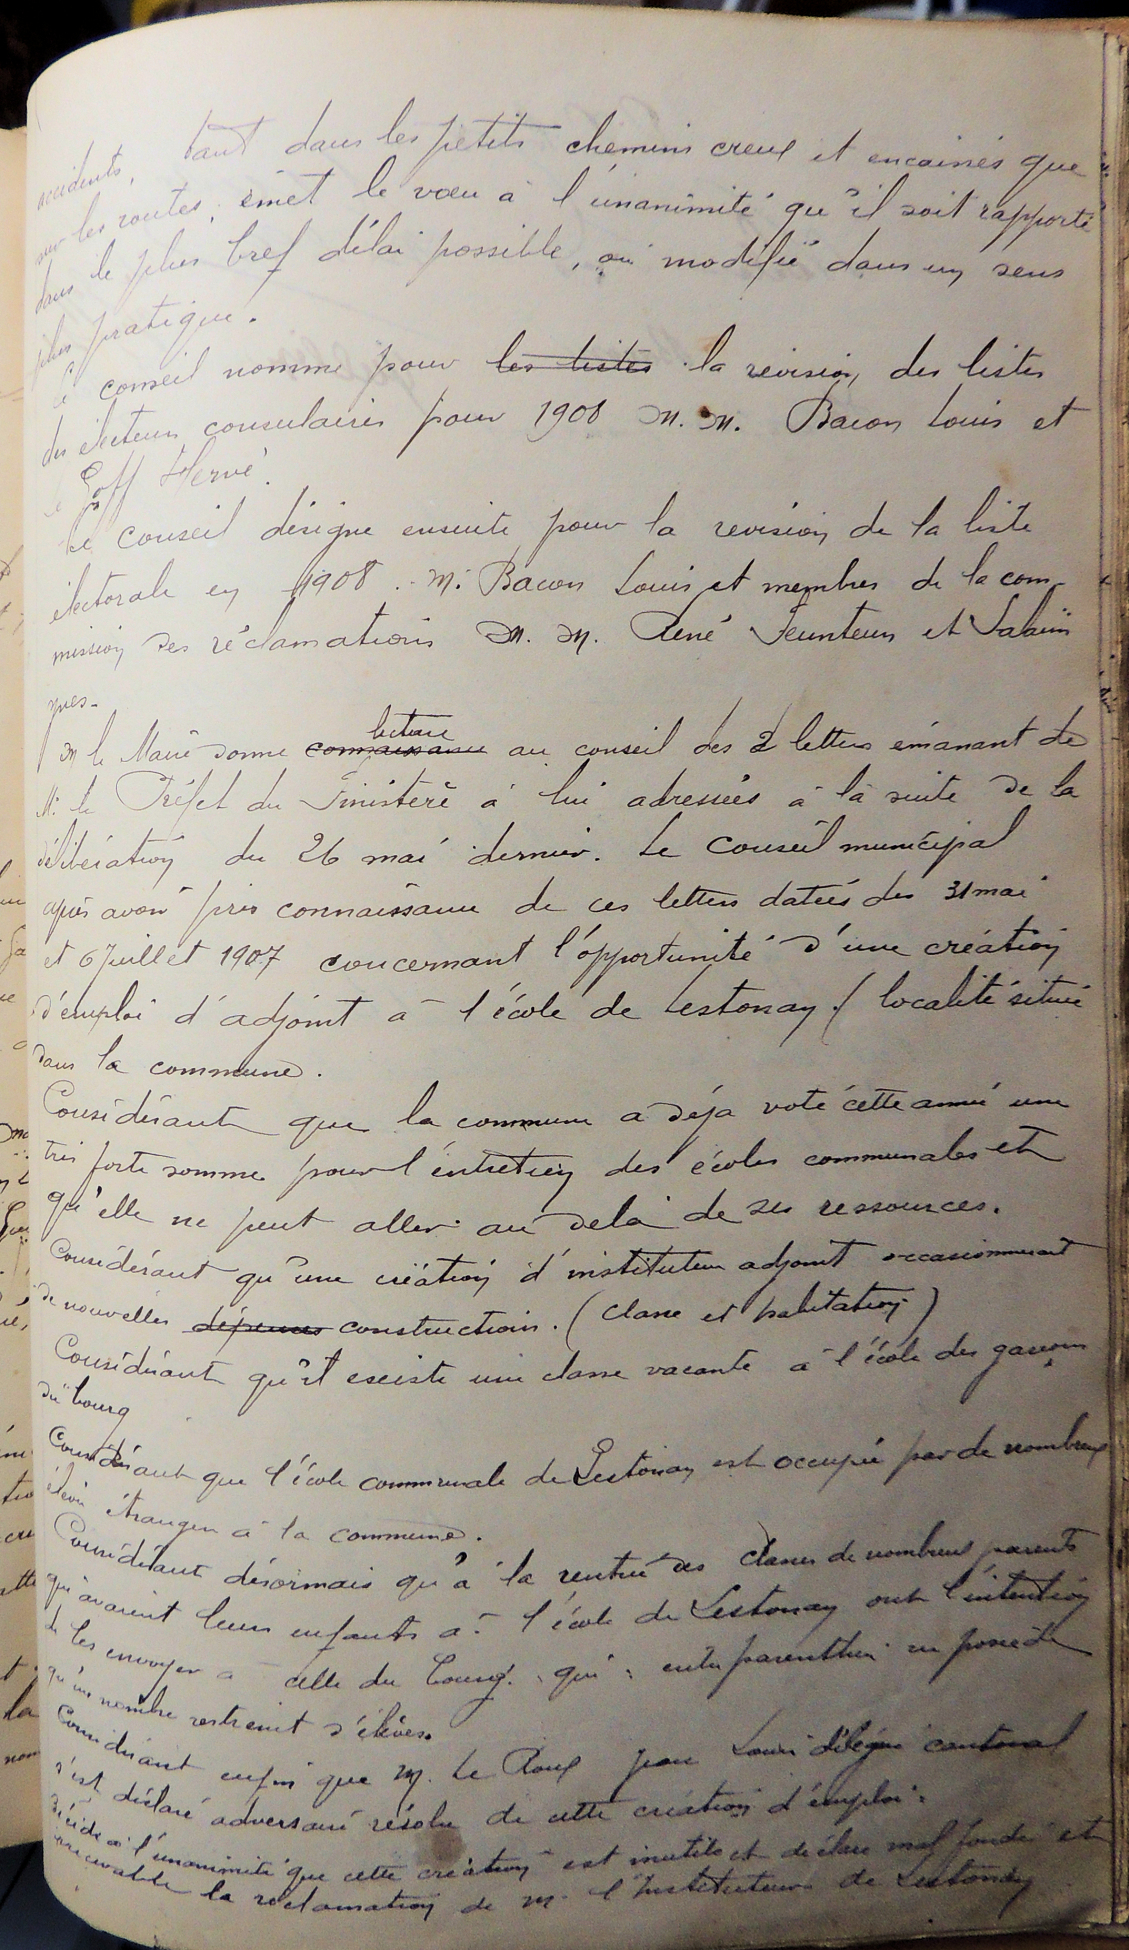 accidents, tant dans les petits chemins creux et encaissés que
sur les routes, émet le vœu à l'unanimité qu'il soit rapporté
dans le plus bref délai possible, ou modifié dans un sens
plus pratique.
Le conseil nomme pour les listes la revision des listes
des électeurs consulaires pour 1908 M. M. Bacon Louis et
le Goff Hervé.
Le conseil désigne ensuite pour la revision de la liste
électorale en 1908. M. Bacon Louis et membres de la com-
mission des réclamations M. M. René Feunteun et Salaün
Yves-
M le Maire donne connaissance lecture au conseil des 2 lettres émanant de
M. le Préfet du Finistère à lui adressées à la suite de la
délibération du 26 mai dernier. Le Conseil municipal
après avoir pris connaissance de ces lettres datées des 31 mai
et 6 Juillet 1907 concernant l'opportunité d'une création
d'emploi d'adjoint à l'école de Lestonay. (localité située
dans la commune.
Considérant que la commune a déja voté cette année une
très forte somme pour l'entretien des écoles communales et
qu'elle ne peut aller au delà de ses ressources.
Considérant qu'une création d'instituteur adjoint occasionnerait
de nouvelles dépenses constructions. (classe et habitation)
Considérant qu'il exciste une classe vacante à l'école des garçons
du bourg
Considérant que l'école communale de Lestonay est occupée par de nombreux
élèves étrangers à la commune.
Considérant désormais qu'à la rentrée des classes de nombreux parents
qui avaient leurs enfants à l'école de Lestonay ont l'intention
de les envoyer à celle du bourg. qui entre parenthèse ne possède
qu'un nombre restreint d'élèves.
Considérant enfin que M. Le Roux Louis délégué cantonal
s'est déclaré adversaire résolu de cette création d'emploi.
Décide à l'unanimité que cette création est inutile et déclare mal fondée et
irrecevable la réclamation de M. l'Instituteur de Lestonay